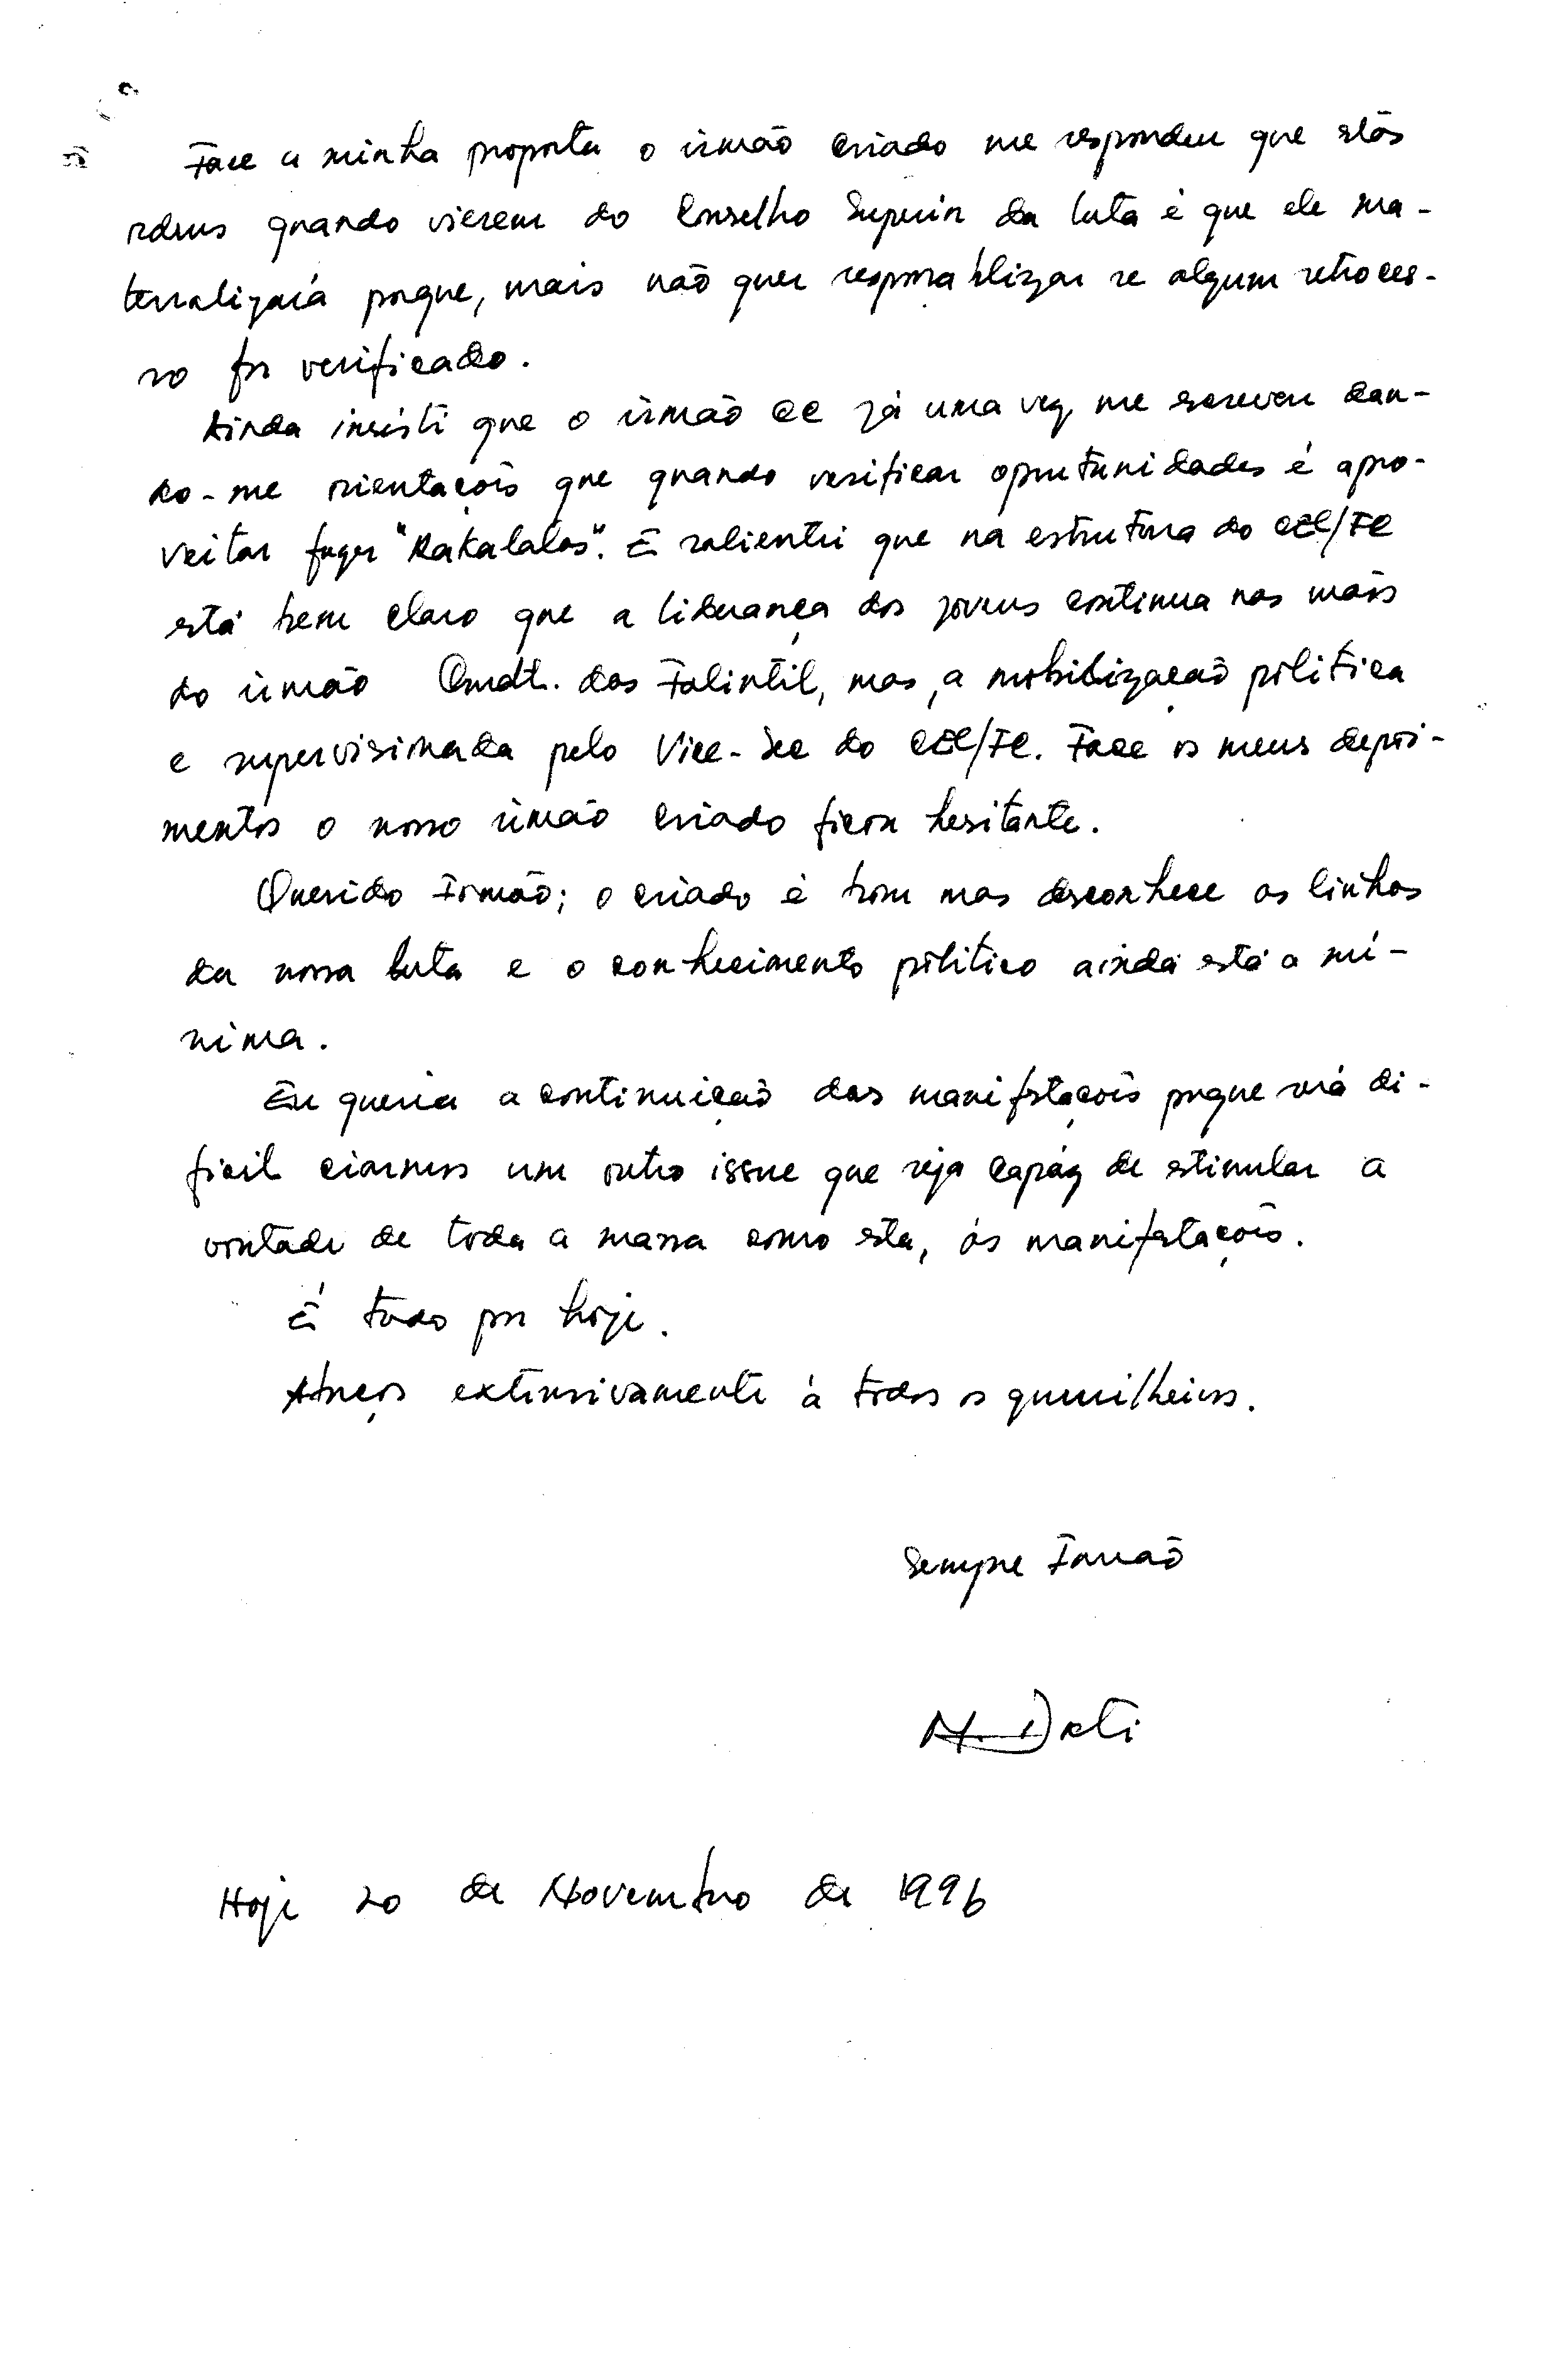 Face a minha proposta o irmão criado me respondeu que stãs
rdens quando vierem do Conselho Superior da luta é que ele ma-
terializará porque, mais não quer responsablizar se algum retroces-
so for verificado.
Ainda insisti que o irmão CC já uma vez me escreveu dan-
do-me orientaçois que quando verificar oportunidades é apro-
veitar fazer "Rakalalas". E salientei que na estrutura do CEL/FC
está bem claro que a liderança dos jovens continua nas mãos
do irmão Cmdt. das Falintil, mas, a mobilização politica
e supervisionada pelo Vice-Sec do CEL/FC. Face os meus depoi-
mentos o nosso irmão criado ficou hesitante.
Querido Irmão; o criado é bom mas desconhece as linhas
da nossa luta e o conhecimento politico ainda está a mí-
nima.
Eu queria a continuição das manifestaçois porque será di-
ficil criarmos um outro issue que seja capáz de estimular a
vontade de toda a massa como esta, ás manifestaçois.
É tudo por hoje.
Abraços extensivamente á todos os guerrilheiros.
Sempre Irmão
Hoje 20 de Novembro de 1996